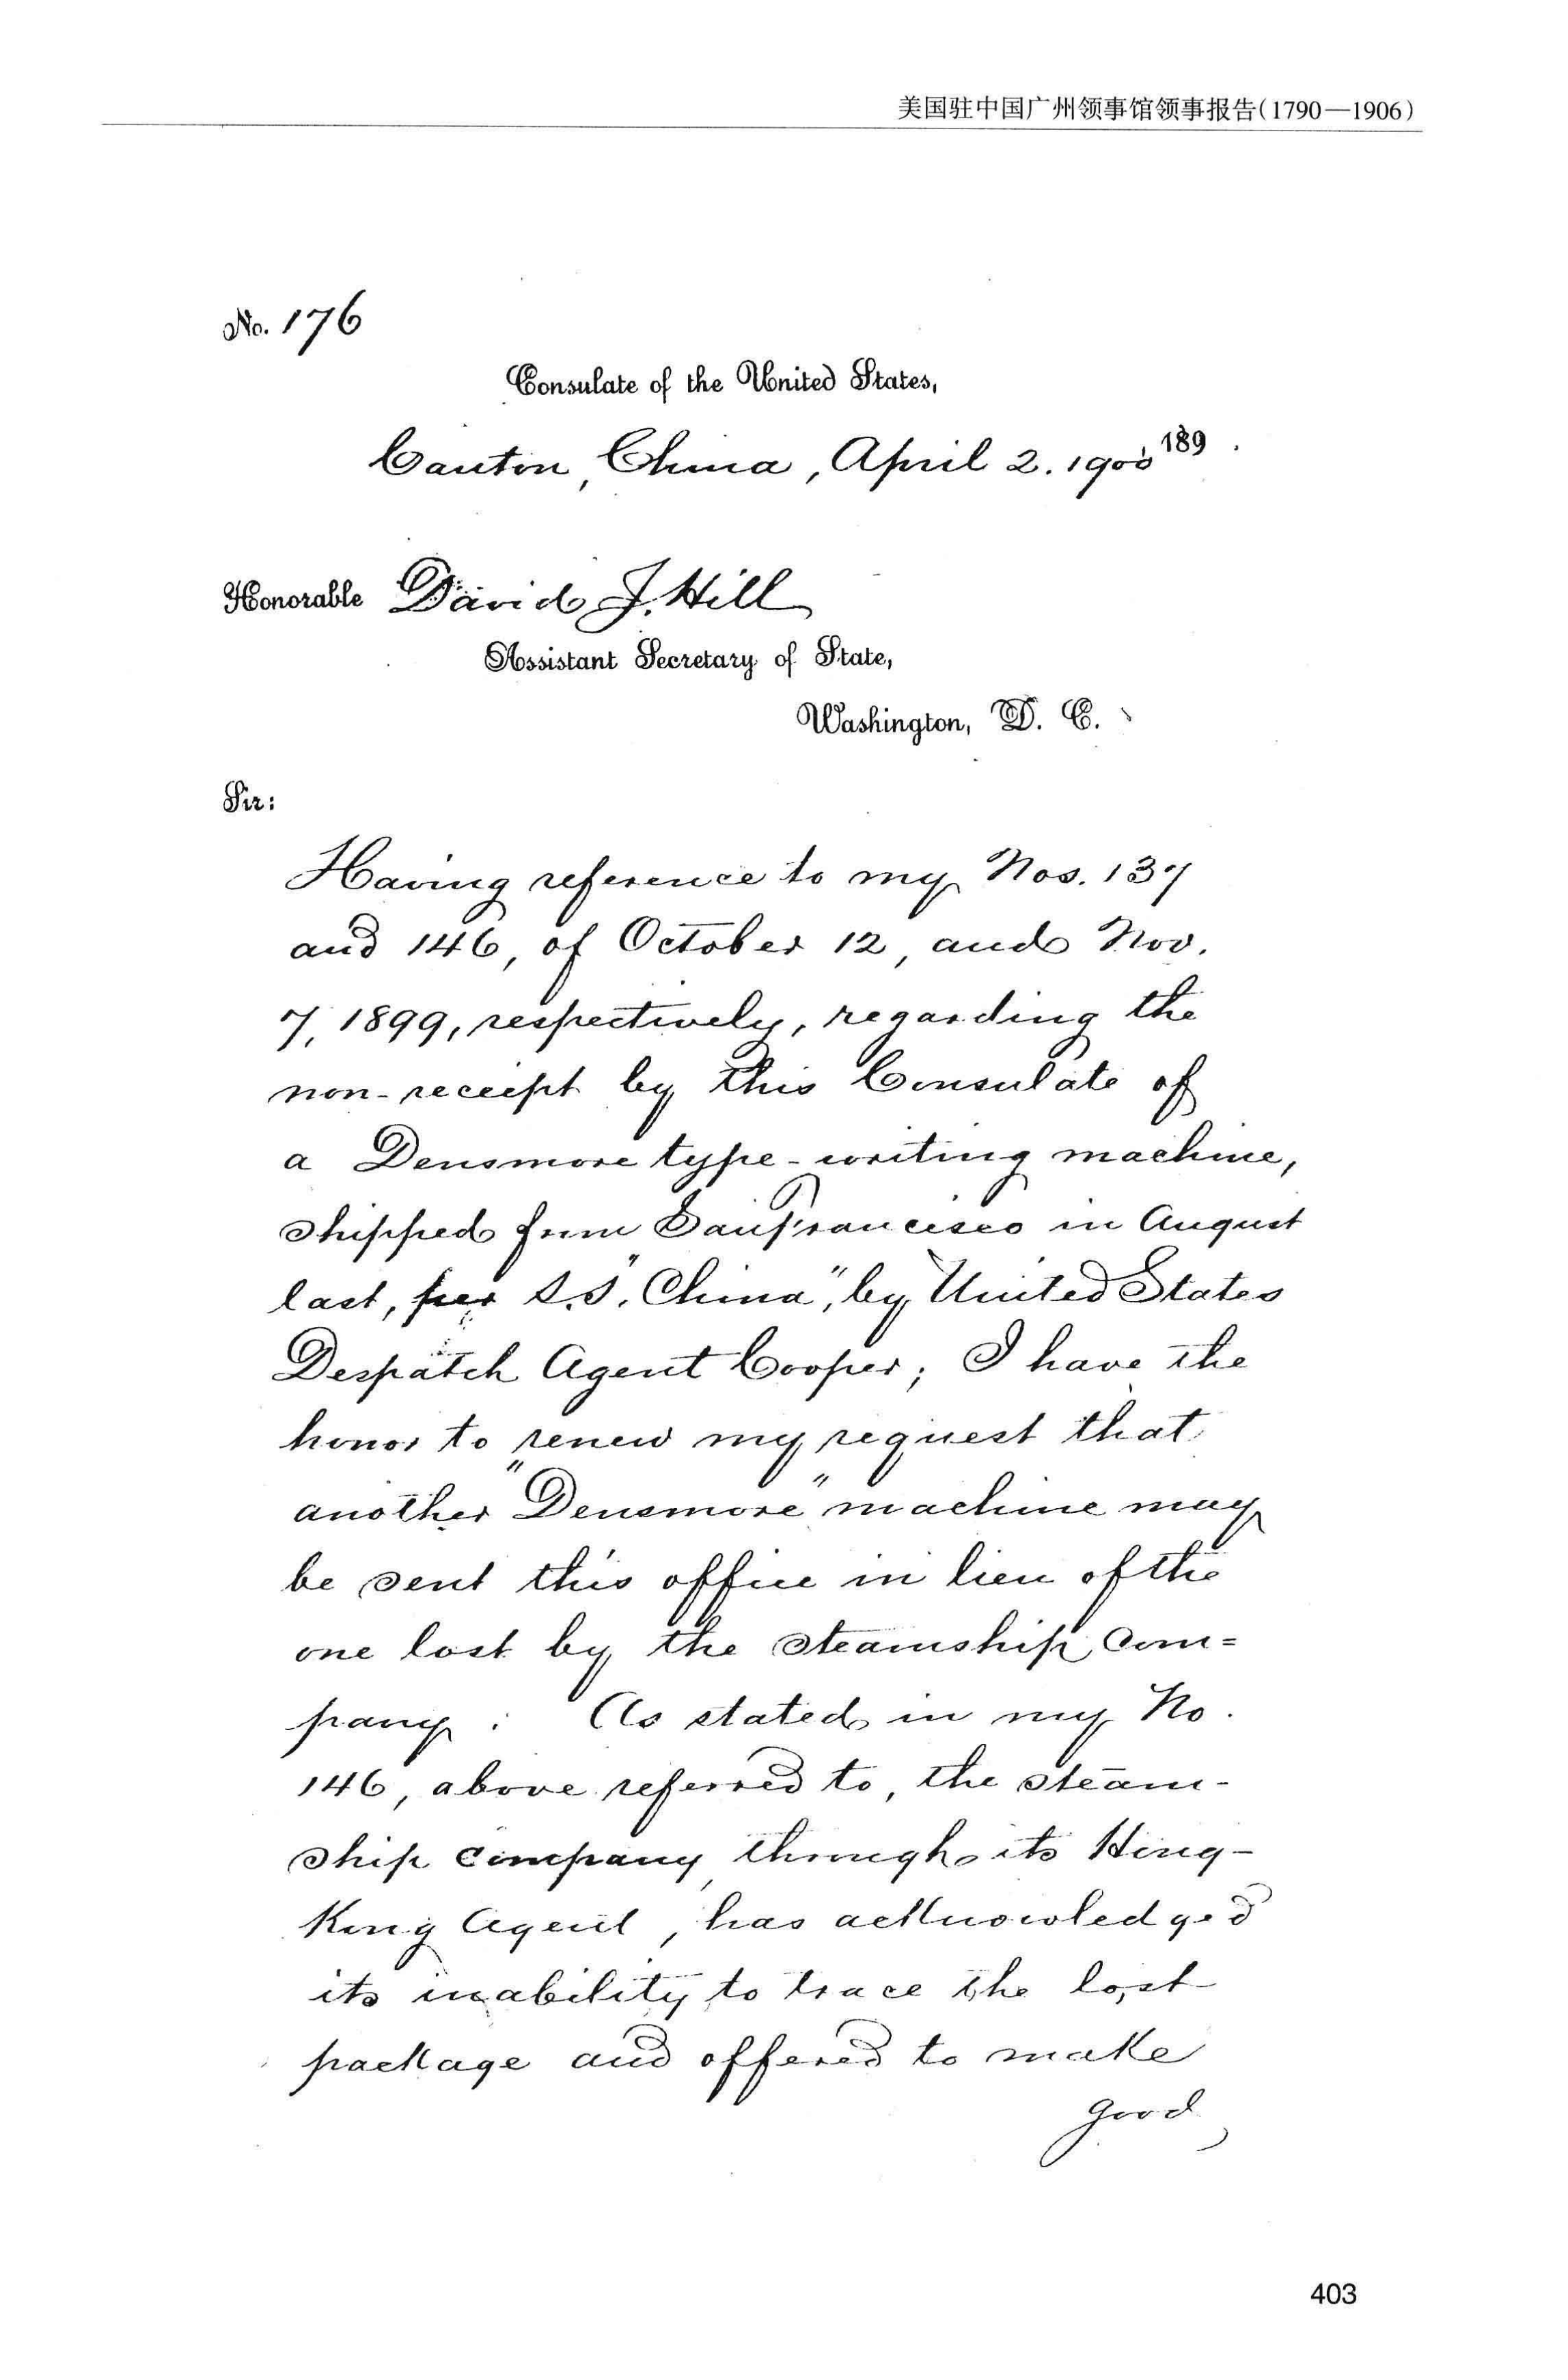 美国驻中国广州领事馆领事报告(1790—1906)
No. 176
Consulate of the United States,
Canton, China, April 2. 1900 189
Honorable David J. Hill
Assistant Secretary of State,
Washington, D. C.
Sir:
Having reference to my Nos. 137
and 146, of October 12, and Nov.
7, 1899, respectively, regarding the
non-receipt by this Consulate of
a Densmore type-writing machine,
shipped from San Francisco in August
last, per S.S. "China", by United States
Despatch Agent Cooper; I have the
honor to renew my request that
another "Densmore" machine may
be sent this office in lieu of the
one lost by the steamship com=
pany. As stated in my No.
146, above referred to, the steam-
ship company, through its Hong-
Kong Agent, has acknowledged
its inability to trace the lost
package and offered to make
good
403